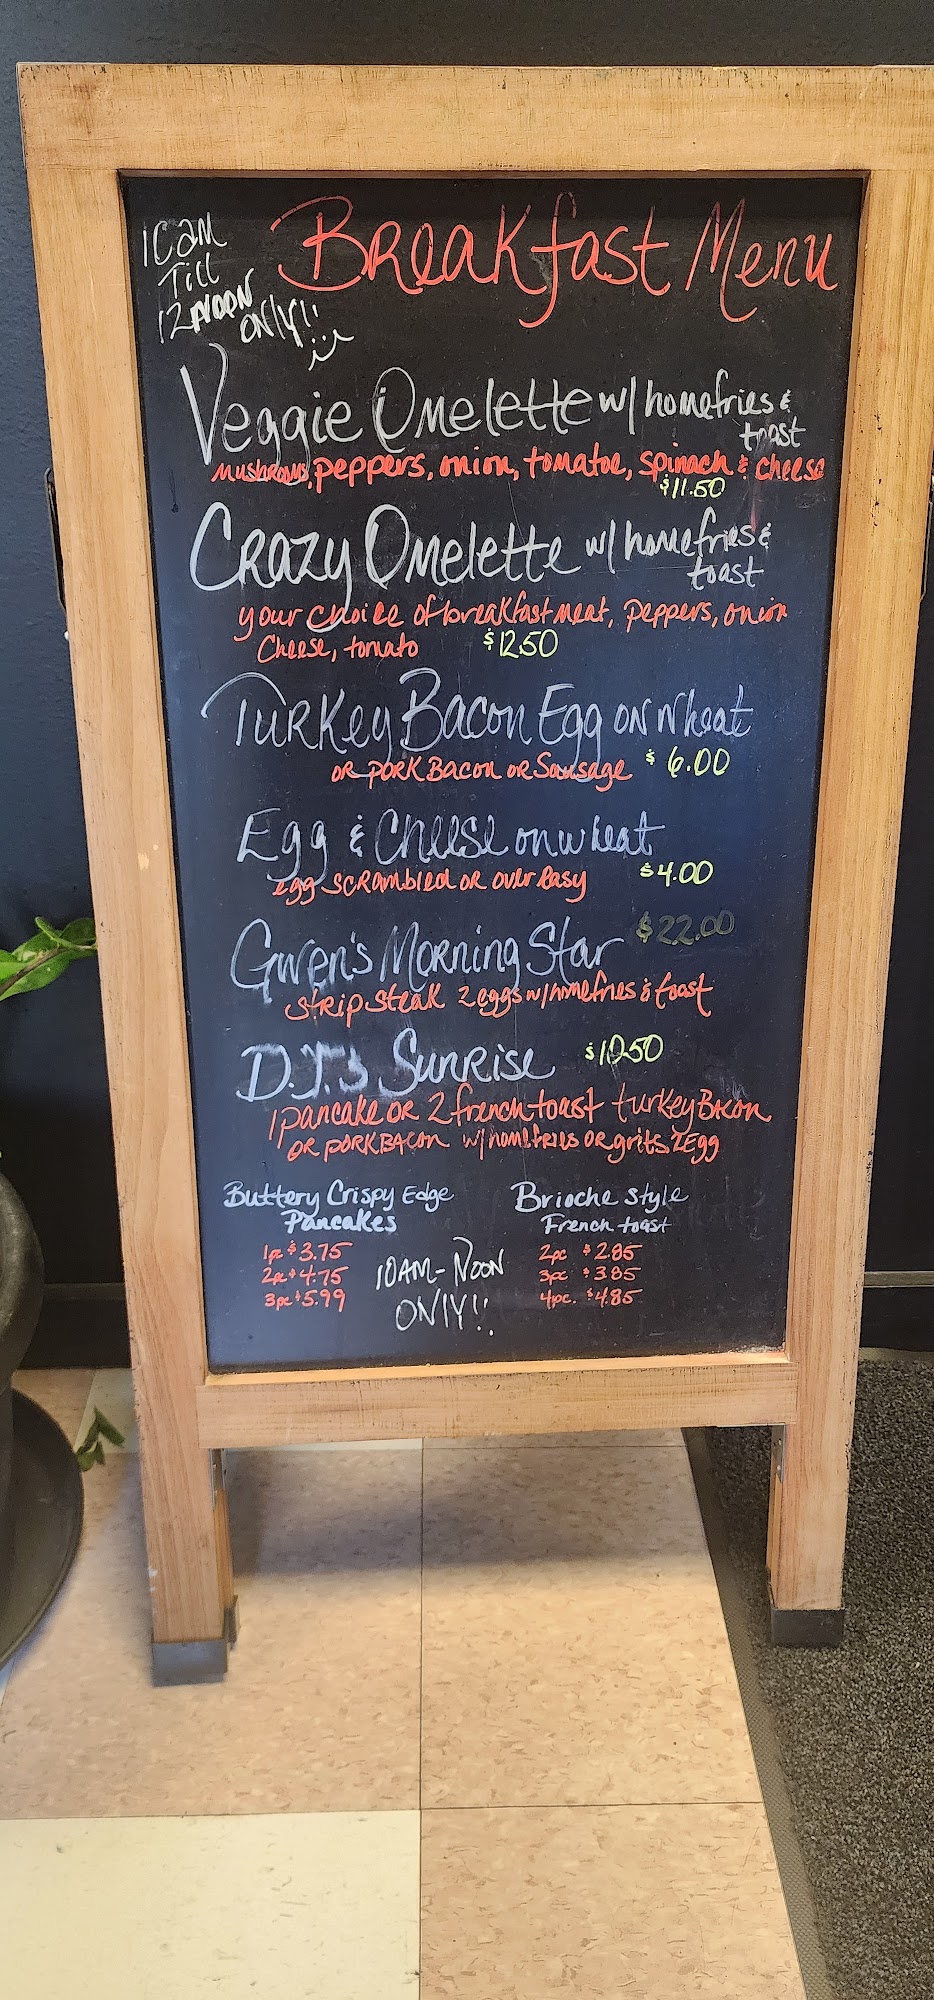 10am
Till
12NOON
ONLY!!
Breakfast Menu
Veggie Omelette w/ homefries &
toast
mushrooms, peppers, onion, tomatoe, spinach & cheese
$11.50
Crazy Omelette w/ homefries &
toast
your choice of breakfast meat, peppers, onion
Cheese, tomato $12.50
Turkey Bacon Egg on wheat
or pork Bacon or Sausage $6.00
Egg & Cheese on wheat
egg scrambled or over easy $4.00
Gwen's Morning Star $22.00
strip steak 2 eggs w/ homefries & toast
D.J.'s Sunrise $10.50
1 pancake or 2 french toast turkey Bacon
or pork Bacon w/ homefries or grits 2 Egg
Buttery Crispy Edge
Pancakes
1pc $3.75
2pc $4.75
3pc $5.99
10AM - Noon
ONLY!!
Brioche style
French toast
2pc $2.85
3pc $3.85
4pc. $4.85